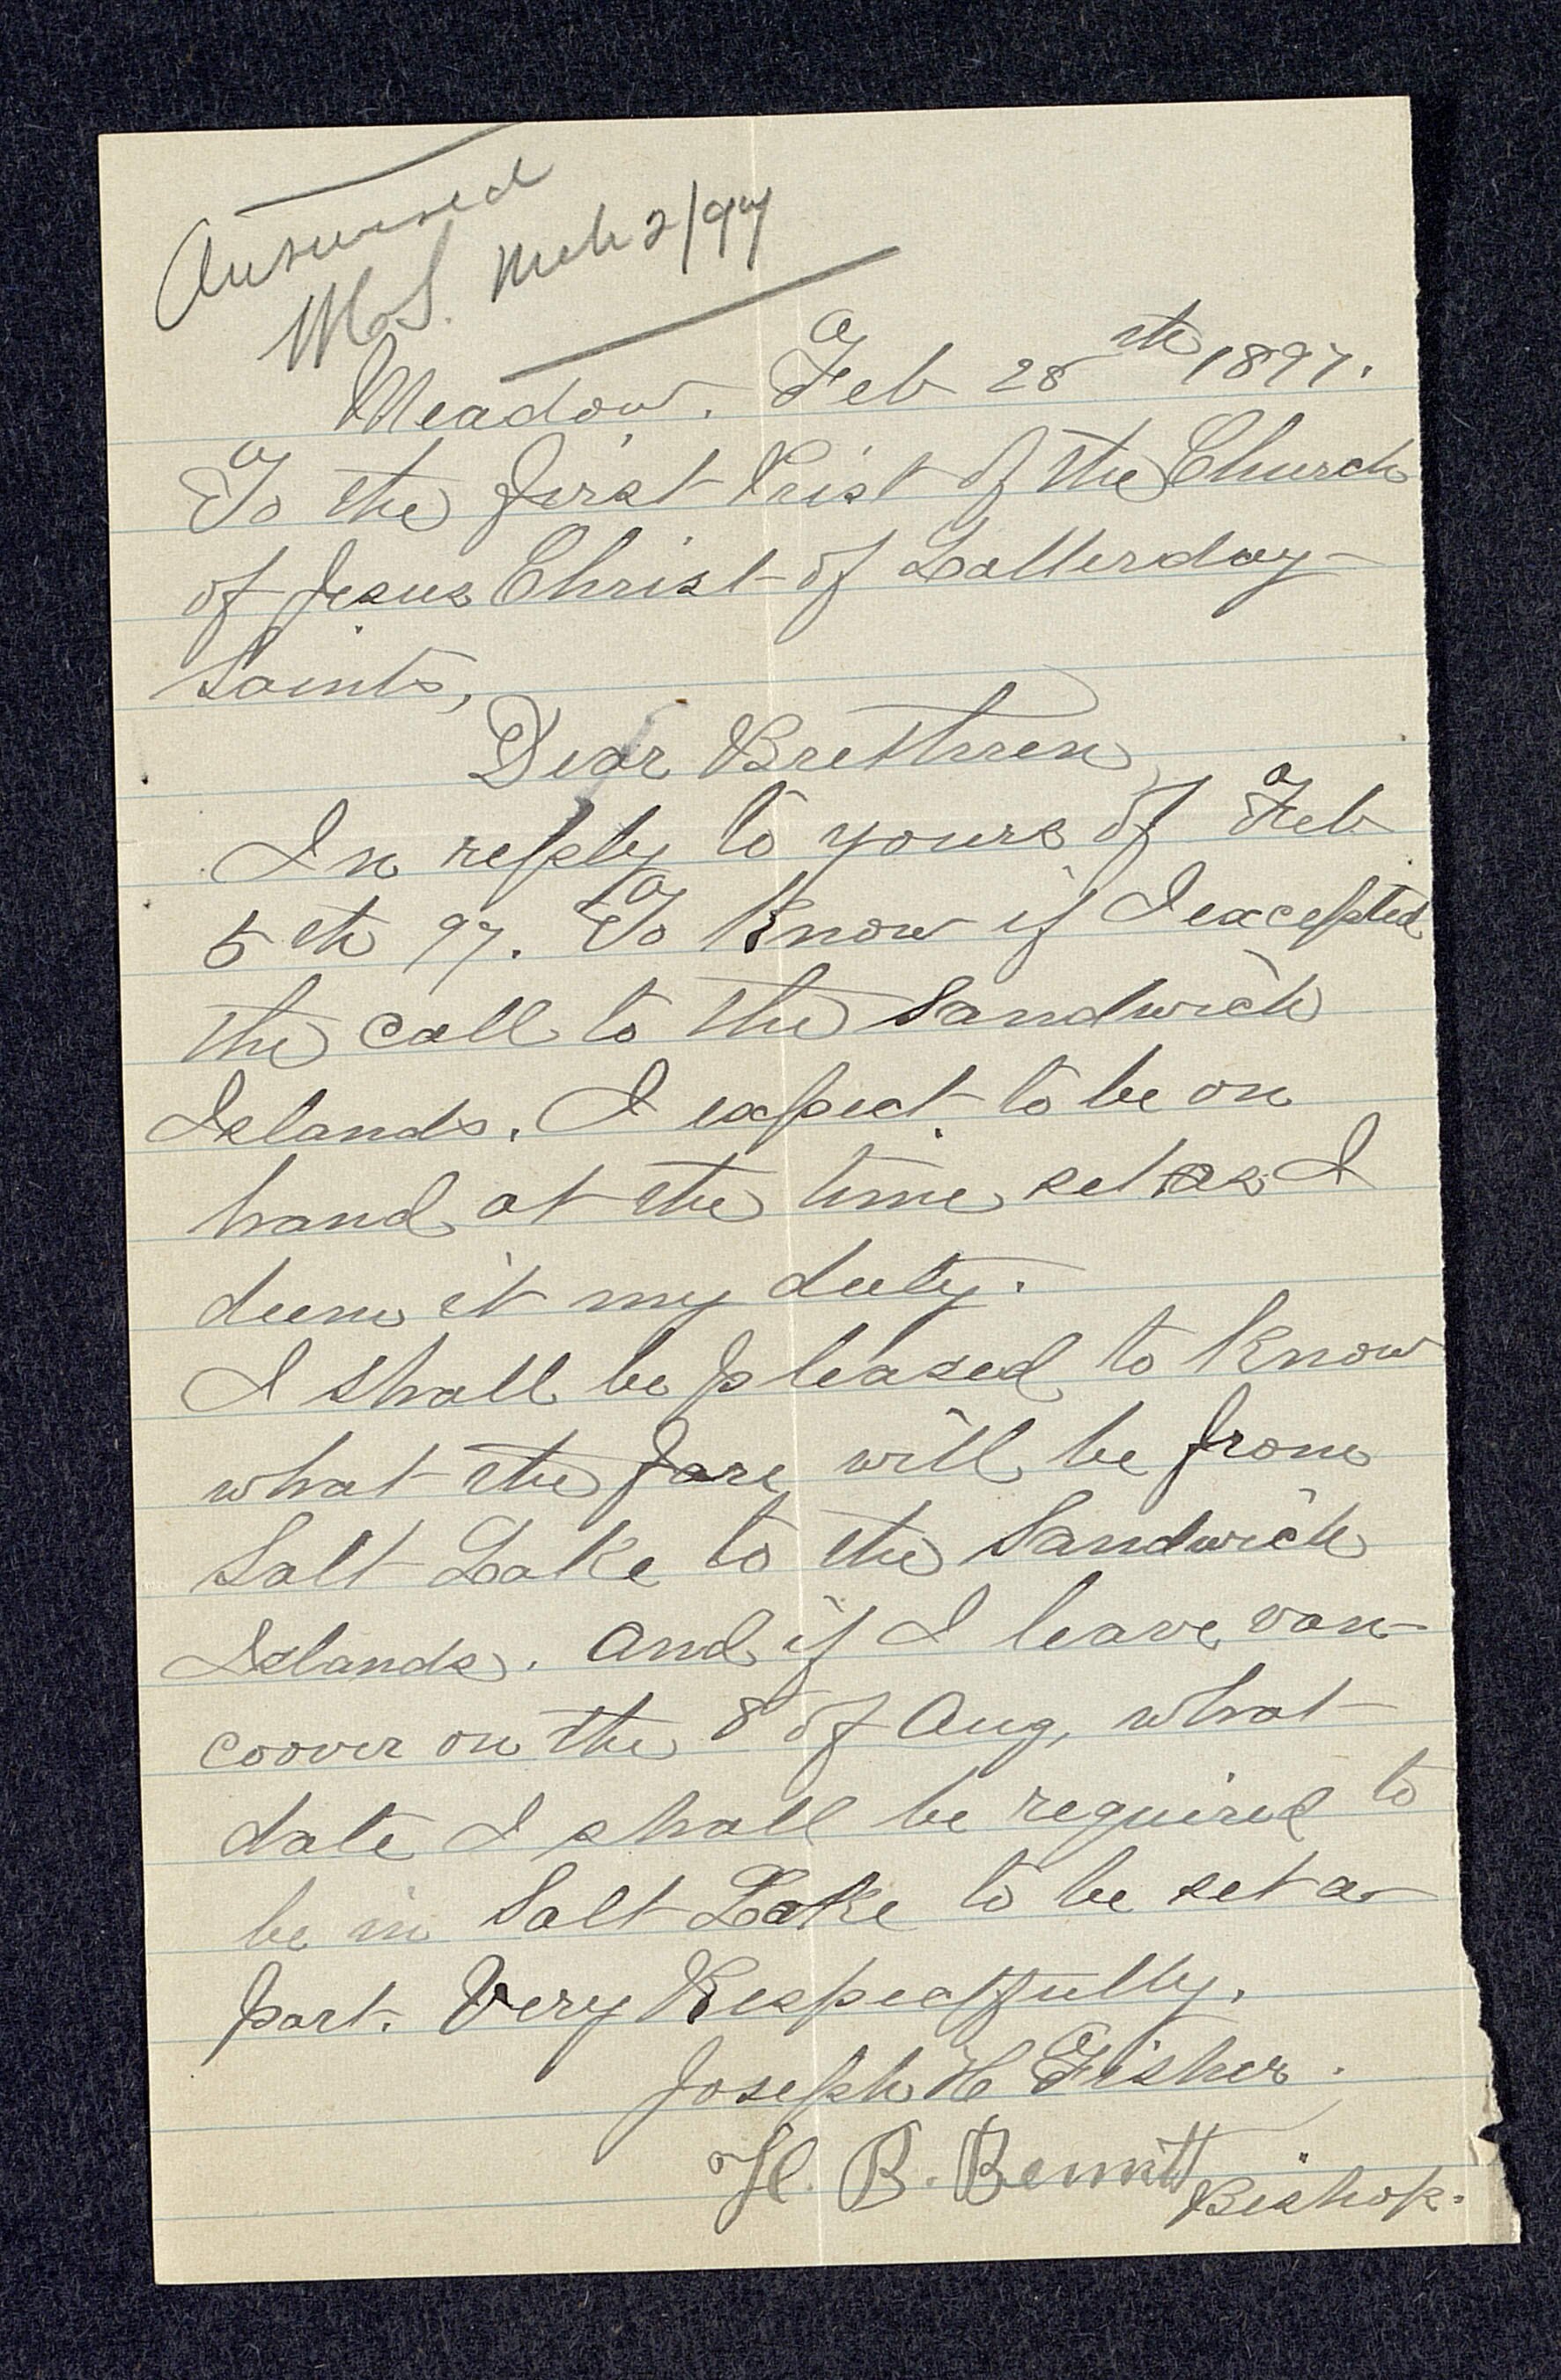 Answered
M. S. Mch 2/97
Meadow. Feb 28th 1897.
To the first Prist of the Church
of Jesus Christ of Latterday
Saints,
Dear Brethren
In reply to yours of Feb
5th 97. To Know if I excepted
the call to the Sandwich
Islands. I expect to be on
hand at the time set as I
deem it my duty.
I shall be pleased to Know
what the fare will be from
Salt Lake to the Sandwich
Islands. and if I leave van-
coover on the 8 of Aug, what
date I shall be required to
be in Salt Lake to be set a
part. Very Respectfully.
Joseph H Fisher.
H. B. Bennett Bishop.